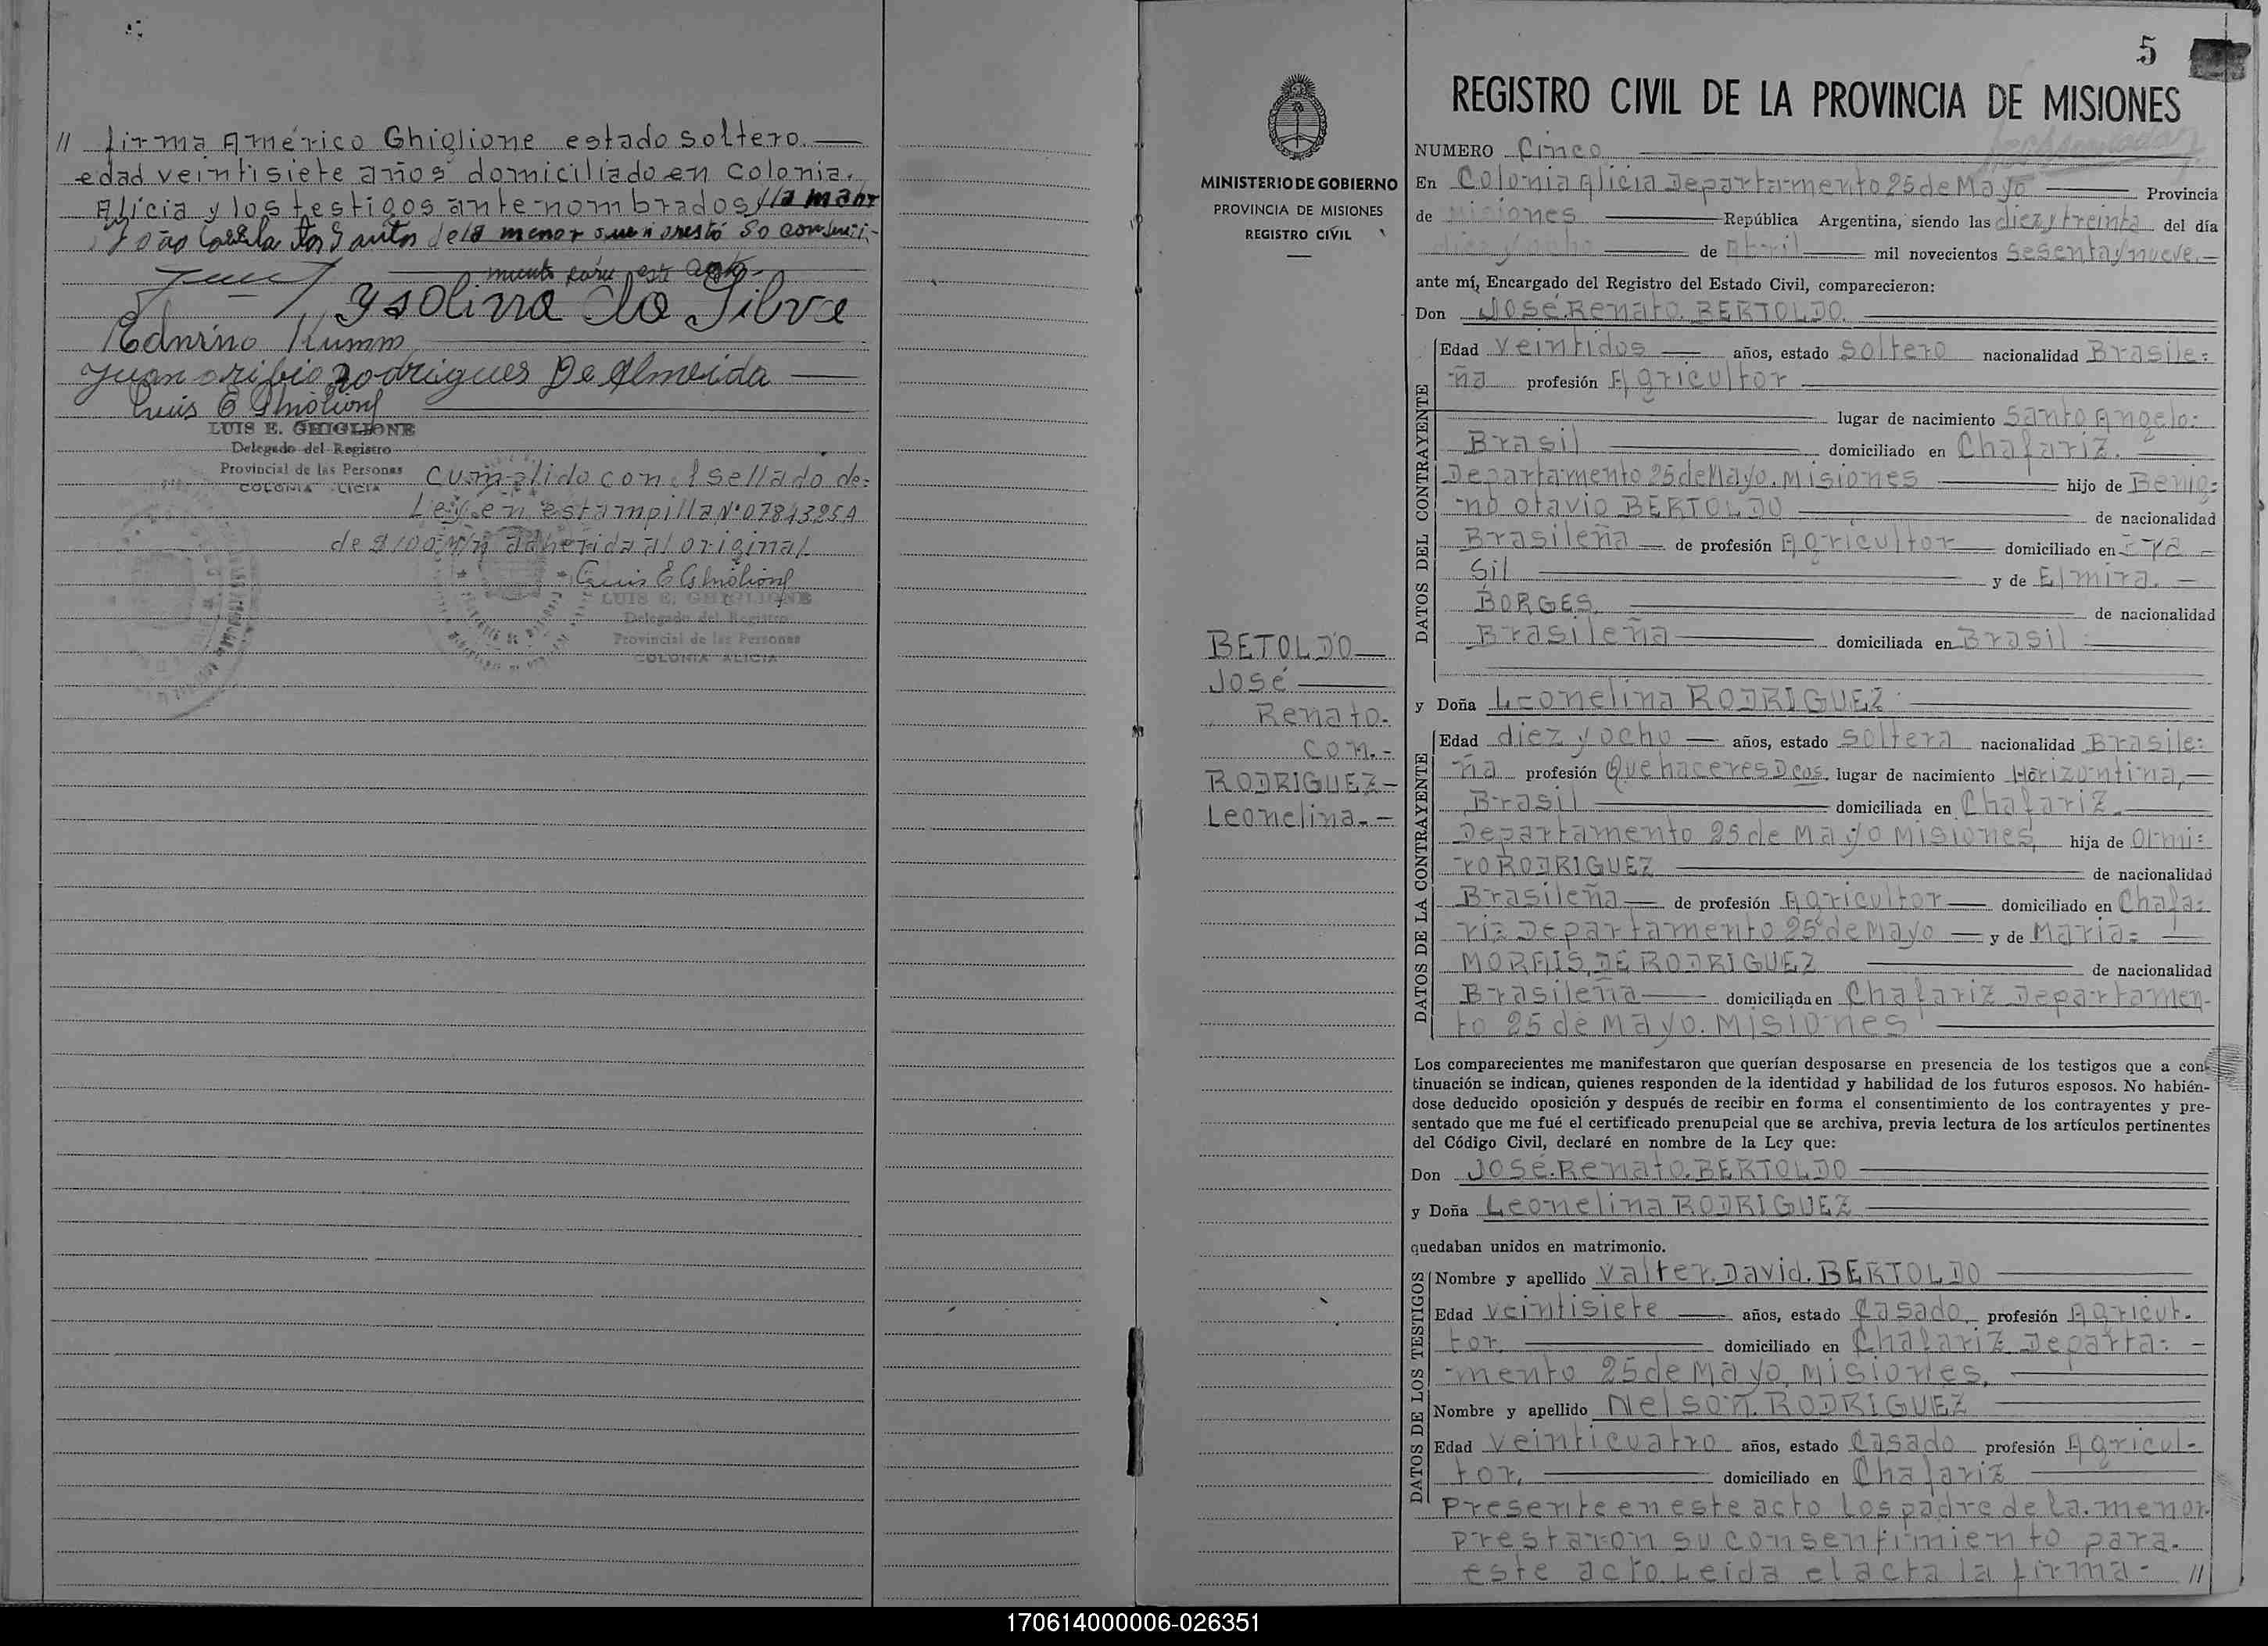 // firma Américo Ghiglione estado soltero.
edad veintisiete años domiciliado en Colonia.
Alicia y los testigos antenombrados y la madr
dos Santos de la menor prestó so consenti-
miento para est acto
Ysolina da Silva
Edvino Kumm
Juan oribio Rodrigues De Almeida
Luis E Ghiglione
LUIS E. GHIGLIONE
Delegado del Registro
Provincial de las Personas
COLONIA ALICIA
Cumplido con el sellado de=
Ley en estampilla Nº 07843259
de $ 100 M/n adherida al original
Luis E Ghiglione
LUIS E. GHIGLIONE
Delegado del Registro
Provincial de las Personas
COLONIA ALICIA
MINISTERIO DE GOBIERNO
PROVINCIA DE MISIONES
REGISTRO CIVIL
BETOLDO
José
Renato.
con.-
RODRIGUEZ-
Leonelina.-
5
REGISTRO CIVIL DE LA PROVINCIA DE MISIONES
NUMERO Cinco
En Colonia Alicia Departamento 25 de Mayo Provincia
de Misiones República Argentina, siendo las diez y treinta del día
diez y ocho de Abril mil novecientos sesenta y nueve.-
ante mí, Encargado del Registro del Estado Civil, comparecieron:
Don José.Renato.BERTOLDO.
DATOS DEL CONTRAYENTE
Edad veintidos años, estado soltero nacionalidad Brasile=
ña profesión Agricultor
lugar de nacimiento Santo Angelo=
Brasil domiciliado en Chafariz.
Departamento 25 de Mayo. Misiones hijo de Benig=
no otavio BERTOLDO de nacionalidad
Brasileña de profesión Agricultor domiciliado en Bra-
sil y de Elmira.
BORGES. de nacionalidad
Brasileña domiciliada en Brasil
y Doña Leonelina RODRIGUEZ
DATOS DE LA CONTRAYENTE
Edad diez y ocho años, estado soltera nacionalidad Brasile=
ña profesión Quehaceres Dcos. lugar de nacimiento Horizontina,
Brasil domiciliada en Chafariz.
Departamento 25 de Mayo Misiones, hija de Ormi=
ro RODRIGUEZ de nacionalidad
Brasileña de profesión Agricultor domiciliado en Chafa=
riz Departamento 25 de Mayo y de Maria=
MORAIS, DE RODRIGUEZ de nacionalidad
Brasileña domiciliada en Chafariz Departamen-
to 25 de Mayo. Misiones
Los comparecientes me manifestaron que querían desposarse en presencia de los testigos que a con-
tinuación se indican, quienes responden de la identidad y habilidad de los futuros esposos. No habién-
dose deducido oposición y después de recibir en forma el consentimiento de los contrayentes y pre-
sentado que me fué el certificado prenupcial que se archiva, previa lectura de los artículos pertinentes
del Código Civil, declaré en nombre de la Ley que:
Don José.Renato.BERTOLDO
y Doña Leonelina RODRIGUEZ
quedaban unidos en matrimonio.
DATOS DE LOS TESTIGOS
Nombre y apellido Valter.David.BERTOLDO
Edad veintisiete años, estado Casado profesión Agricul-
tor. domiciliado en Chafariz Departa=
mento 25 de Mayo, Misiones.
Nombre y apellido Nelson.RODRIGUEZ
Edad veinticuatro años, estado Casado profesión Agricul-
tor, domiciliado en Chafariz
Presente en este acto los padre de la.menor.
prestaron su consentimiento para.
este acto. Leida el acta la firma= //
170614000006-026351